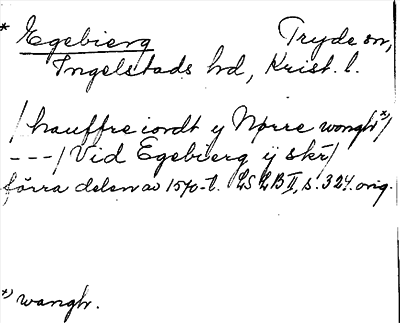 * Egebierg Tryde sn,
Ingelstads hd, Krist. l.
/ hauffre iordt y Nørre wongh*)/
---/ Vid Egebierg ÿ skr̃/
förra delen av 1570-t. LSLB II, s. 324. orig.
*) wangh.